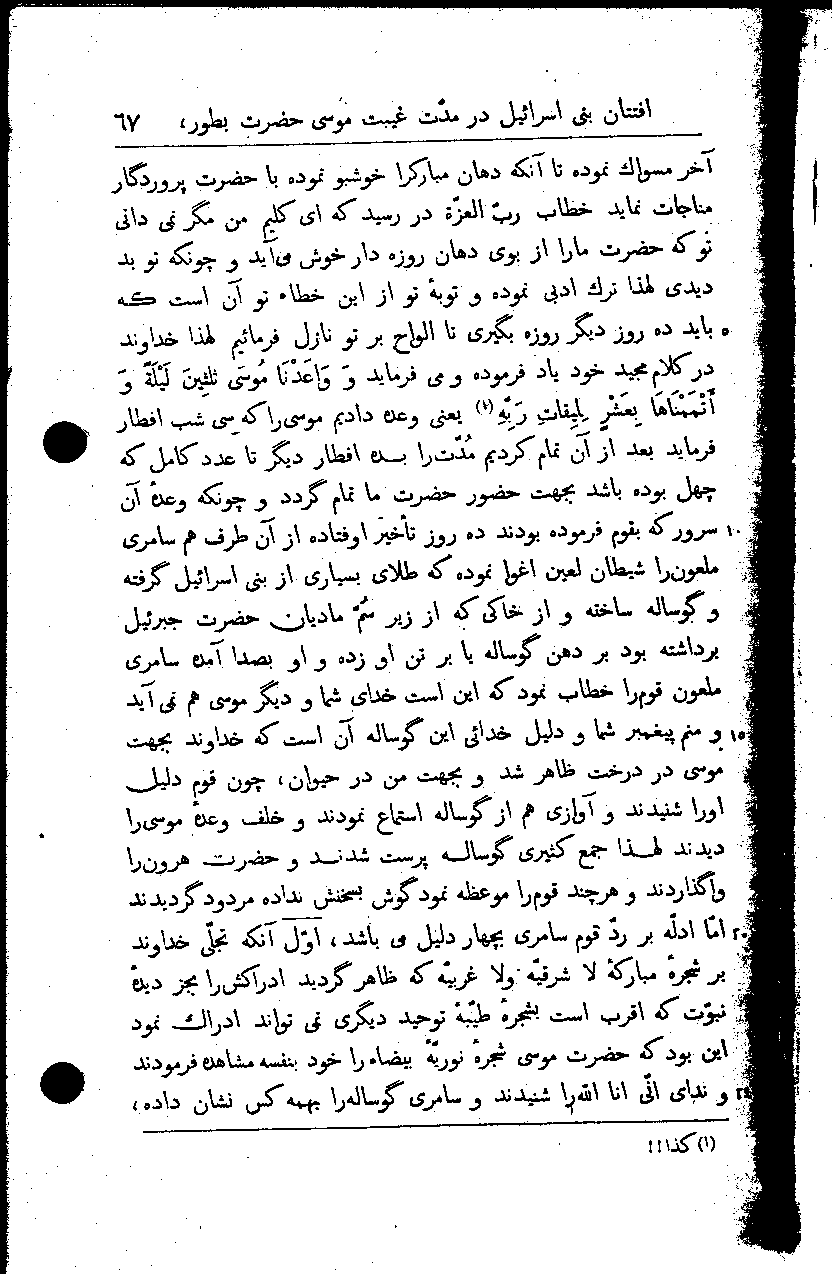 افتتان بنی اسرائیل در مدّت غیبت موسی حضرت بطور، ٦٧
آخر مسواك نموده تا آنکه دهان مبارکرا خوشبو نموده با حضرت پروردگار
مناجات نماید خطاب ربّ العزّة در رسید که ای کلیم من مگر نمی دانی
تو که حضرت مارا از بوی دهان روزه دار خوش می‌آید و چونکه تو بد
دیدی لهذا ترك ادبی نموده و توبهٔ تو از این خطاء تو آن است که
٥ باید ده روز دیگر روزه بگیری تا الواح بر تو نازل فرمائیم لهذا خداوند
در کلام مجید خود یاد فرموده و می فرماید وَ وَاعَدْنَا مُوسَی ثلثِینَ لَیْلَةً وَ
أَتْمَمْنَاهَا بِعَشْرٍ لِمِیقاتِ رَبِّهِ(١) یعنی وعده دادیم موسی‌را که سی شب افطار
فرماید بعد از آن تمام کردیم مُدّت‌را بـده افطار دیگر تا عدد کامل که
چهل بوده باشد بجهت حضور حضرت ما تمام گردد و چونکه وعدهٔ آن
١٠ سرور که بقوم فرموده بودند ده روز تأخیر اوفتاده از آن طرف هم سامری
ملعون‌را شیطان لعین اغوا نموده که طلای بسیاری از بنی اسرائیل گرفته
و گوساله ساخته و از خاکی که از زیر سُمّ مادیان حضرت جبرئیل
برداشته بود بر دهن گوساله یا بر تن او زده و او بصدا آمده سامری
ملعون قوم‌را خطاب نمود که این است خدای شما و دیگر موسی هم نمی آید
١٥ و منم پیغمبر شما و دلیل خدائی این گوساله آن است که خداوند بجهت
موسی در درخت ظاهر شد و بجهت من در حیوان، چون قوم دلیل
اورا شنیدند و آوازی هم از گوساله استماع نمودند و خلف وعدهٔ موسی‌را
دیدند لهـذا جمع کثیری گوسالـه پرست شدنـد و حضرت هرون‌را
واگذاردند و هرچند قوم‌را موعظه نمود گوش بسخنش نداده مردود گردیدند
٢٠ امّا ادلّه بر ردّ قوم سامری بچهار دلیل می باشد، اوّل آنکه تجلّی خداوند
بر شجرهٔ مبارکهٔ لا شرقیّه ولا غربیّه که ظاهر گردید ادراکش‌را بجز دیدهٔ
نبوّت که اقرب است بشجرهٔ طیّبهٔ توحید دیگری نمی تواند ادراك نمود
این بود که حضرت موسی شجرهٔ نوریّهٔ بیضاء را خود بنفسه مشاهده فرمودند
٢٤ و ندای انّی انا اللّه‌را شنیدند و سامری گوساله‌را بهمه کس نشان داده،
(١) کذا!!!